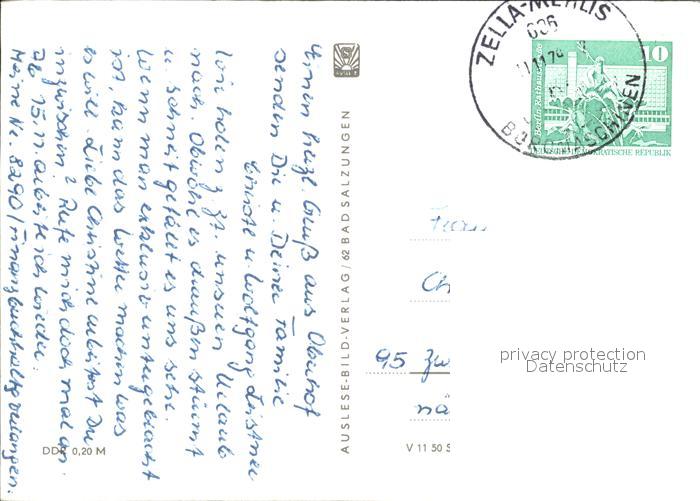 Einen herzl. Gruß aus Oberhof
senden Dir u. Deiner Familie
Christel u. Wolfgang
Wir holen z. Zt. unseren Urlaub
nach. Obwohl es draußen stürmt
u. schneit gefällt es uns sehr.
Wenn man exklusiv untergebracht
ist, kann das Wetter machen was
es will. Liebe Christine arbeitest Du
inzwischen? Rufe mich doch mal an.
Ab 15.11. arbeite ich wieder.
Meine Nr. 8290/Finanzbuchhaltg verlangen.
DDR 0,20 M
AUSLESE-BILD-VERLAG / 62 BAD SALZUNGEN
V 11 50 S
ZELLA-MEHLIS
606
BÜROMASCHINEN
10
Berlin Rathausstraße
DEUTSCHE DEMOKRATISCHE REPUBLIK
Frau
Ch
95 Zw
nä
privacy protection
Datenschutz